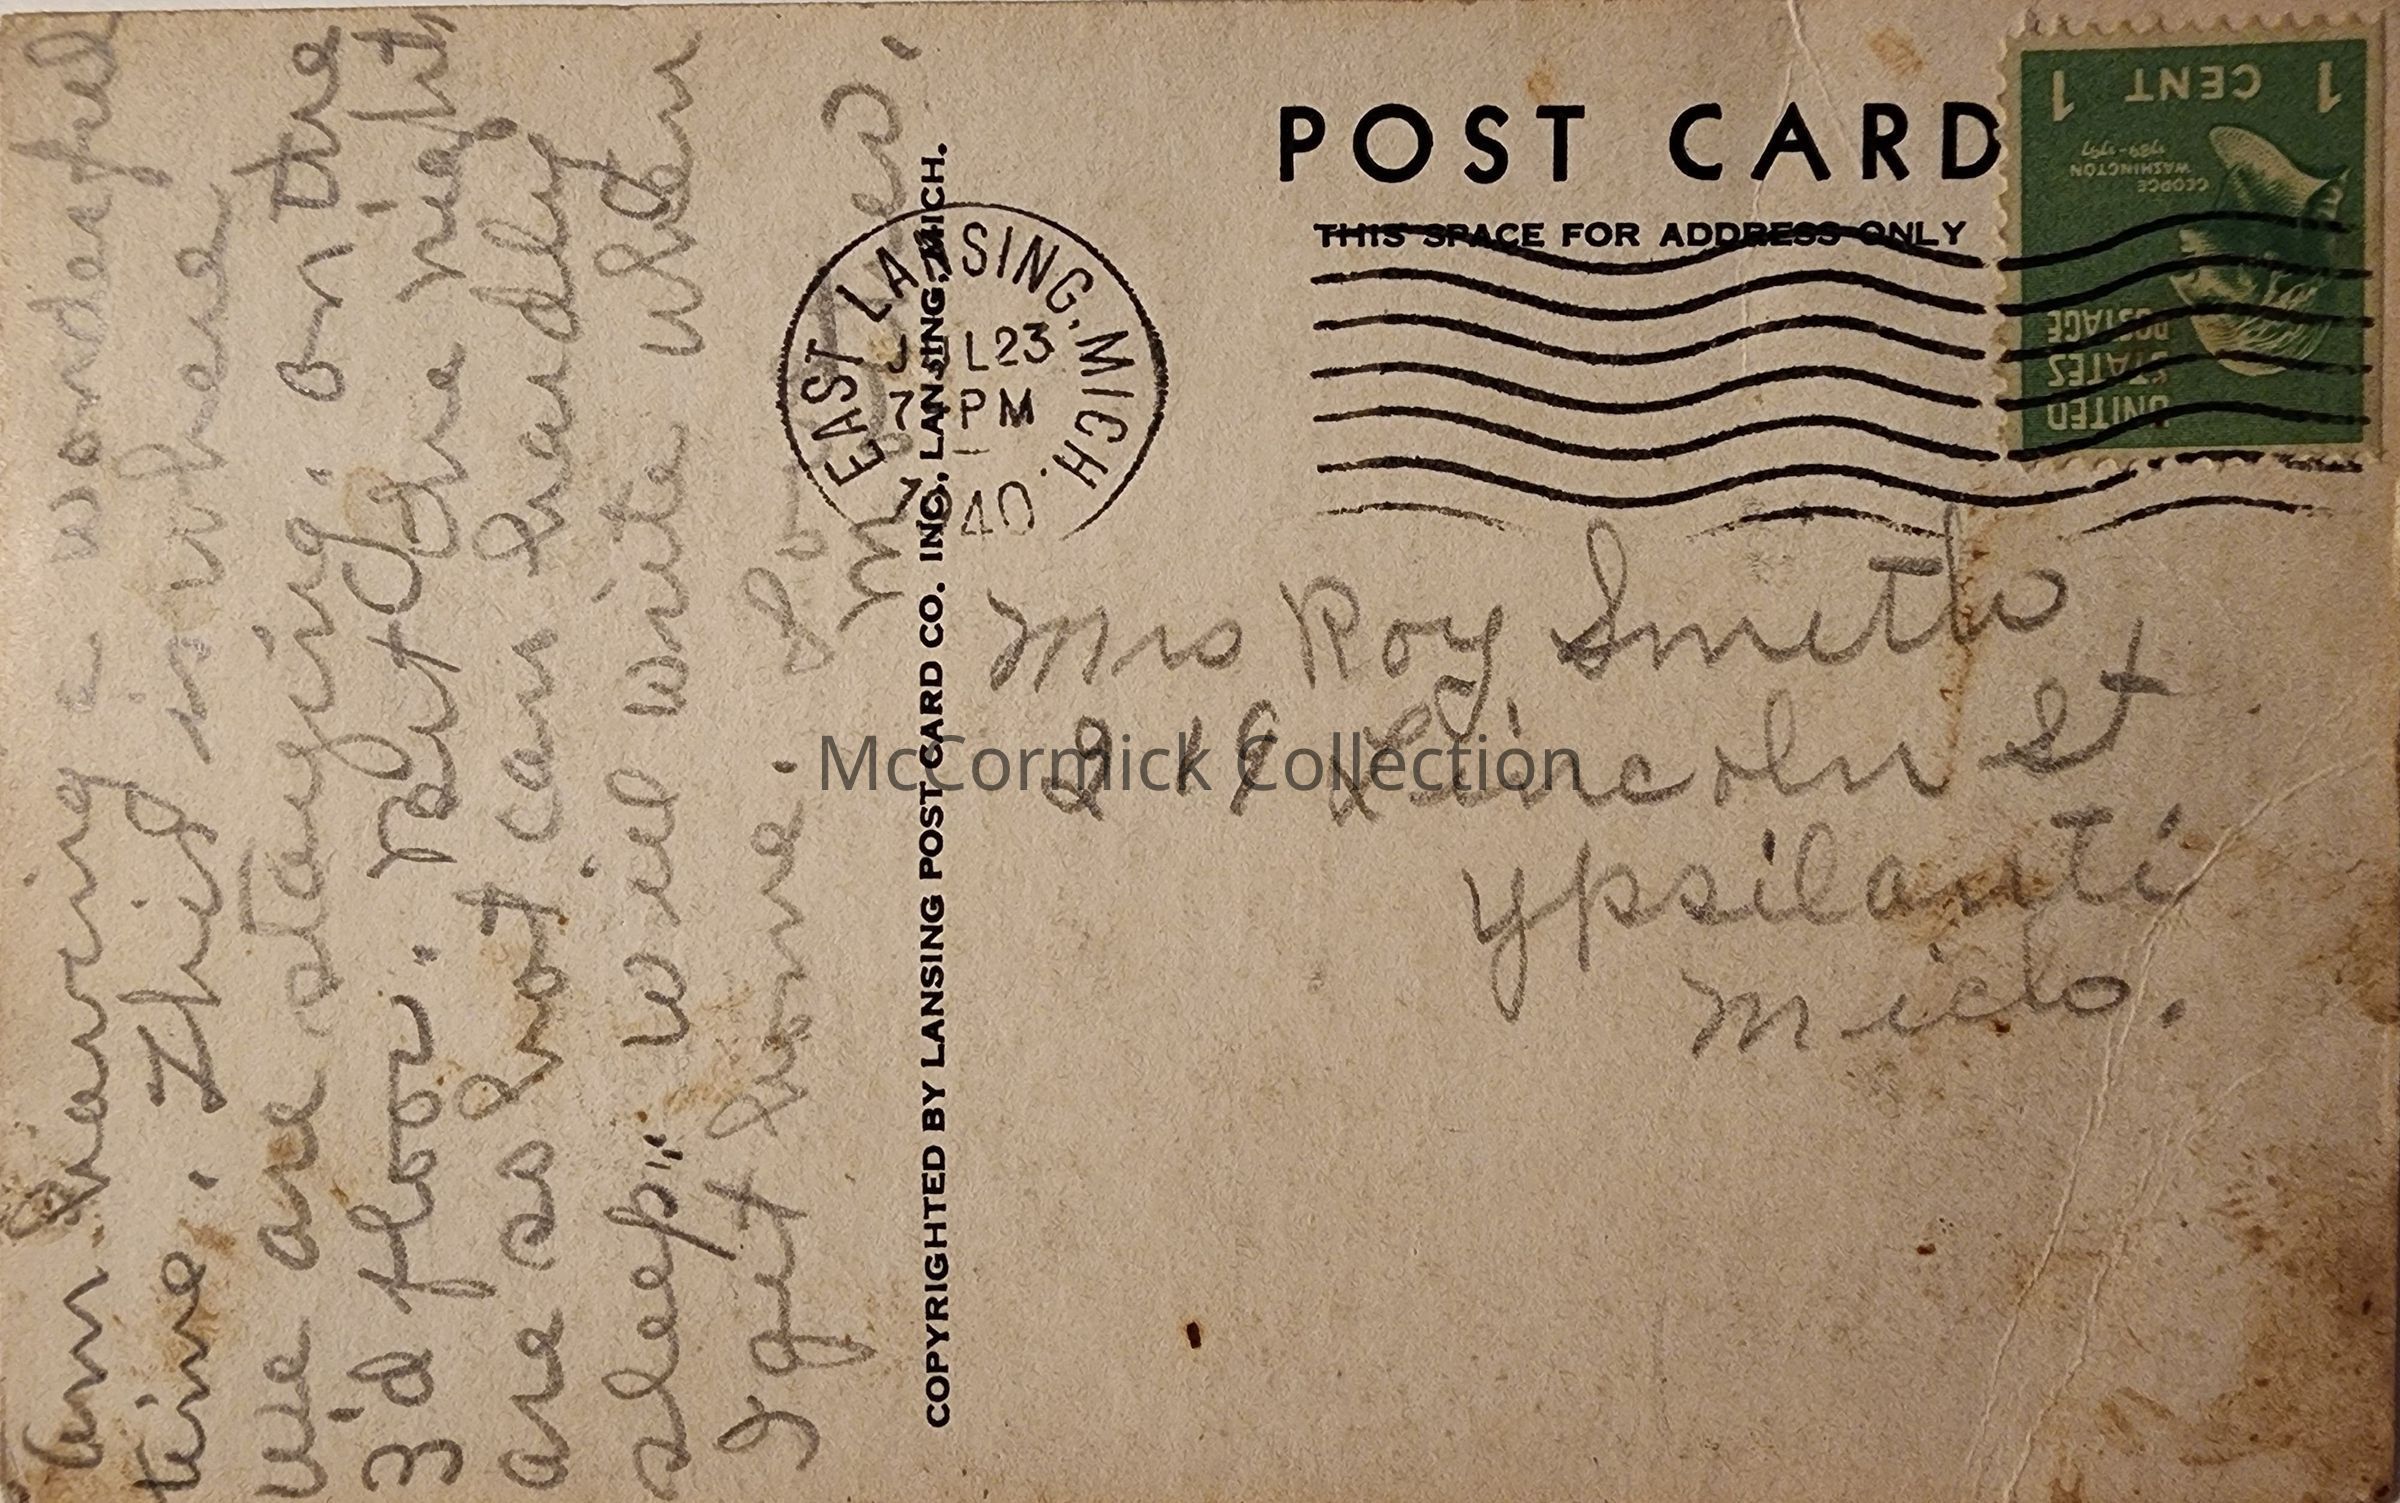 Am having a wonderful
time. This is where
we are staying. on the
3'd floor. But O, the night
are so hot can hardly
sleep,, will write when
I get home.
POST CARD
THIS SPACE FOR ADDRESS ONLY
EAST LANSING, MICH.
JUL 23
7 PM
1940
1 CENT 1
GEORGE
WASHINGTON
1789-1797
UNITED
STATES
POSTAGE
COPYRIGHTED BY LANSING POST CARD CO. INC., LANSING, MICH.
Mrs Roy Smith
219 Lincoln St
Ypsilanti
Mich.
McCormick Collection